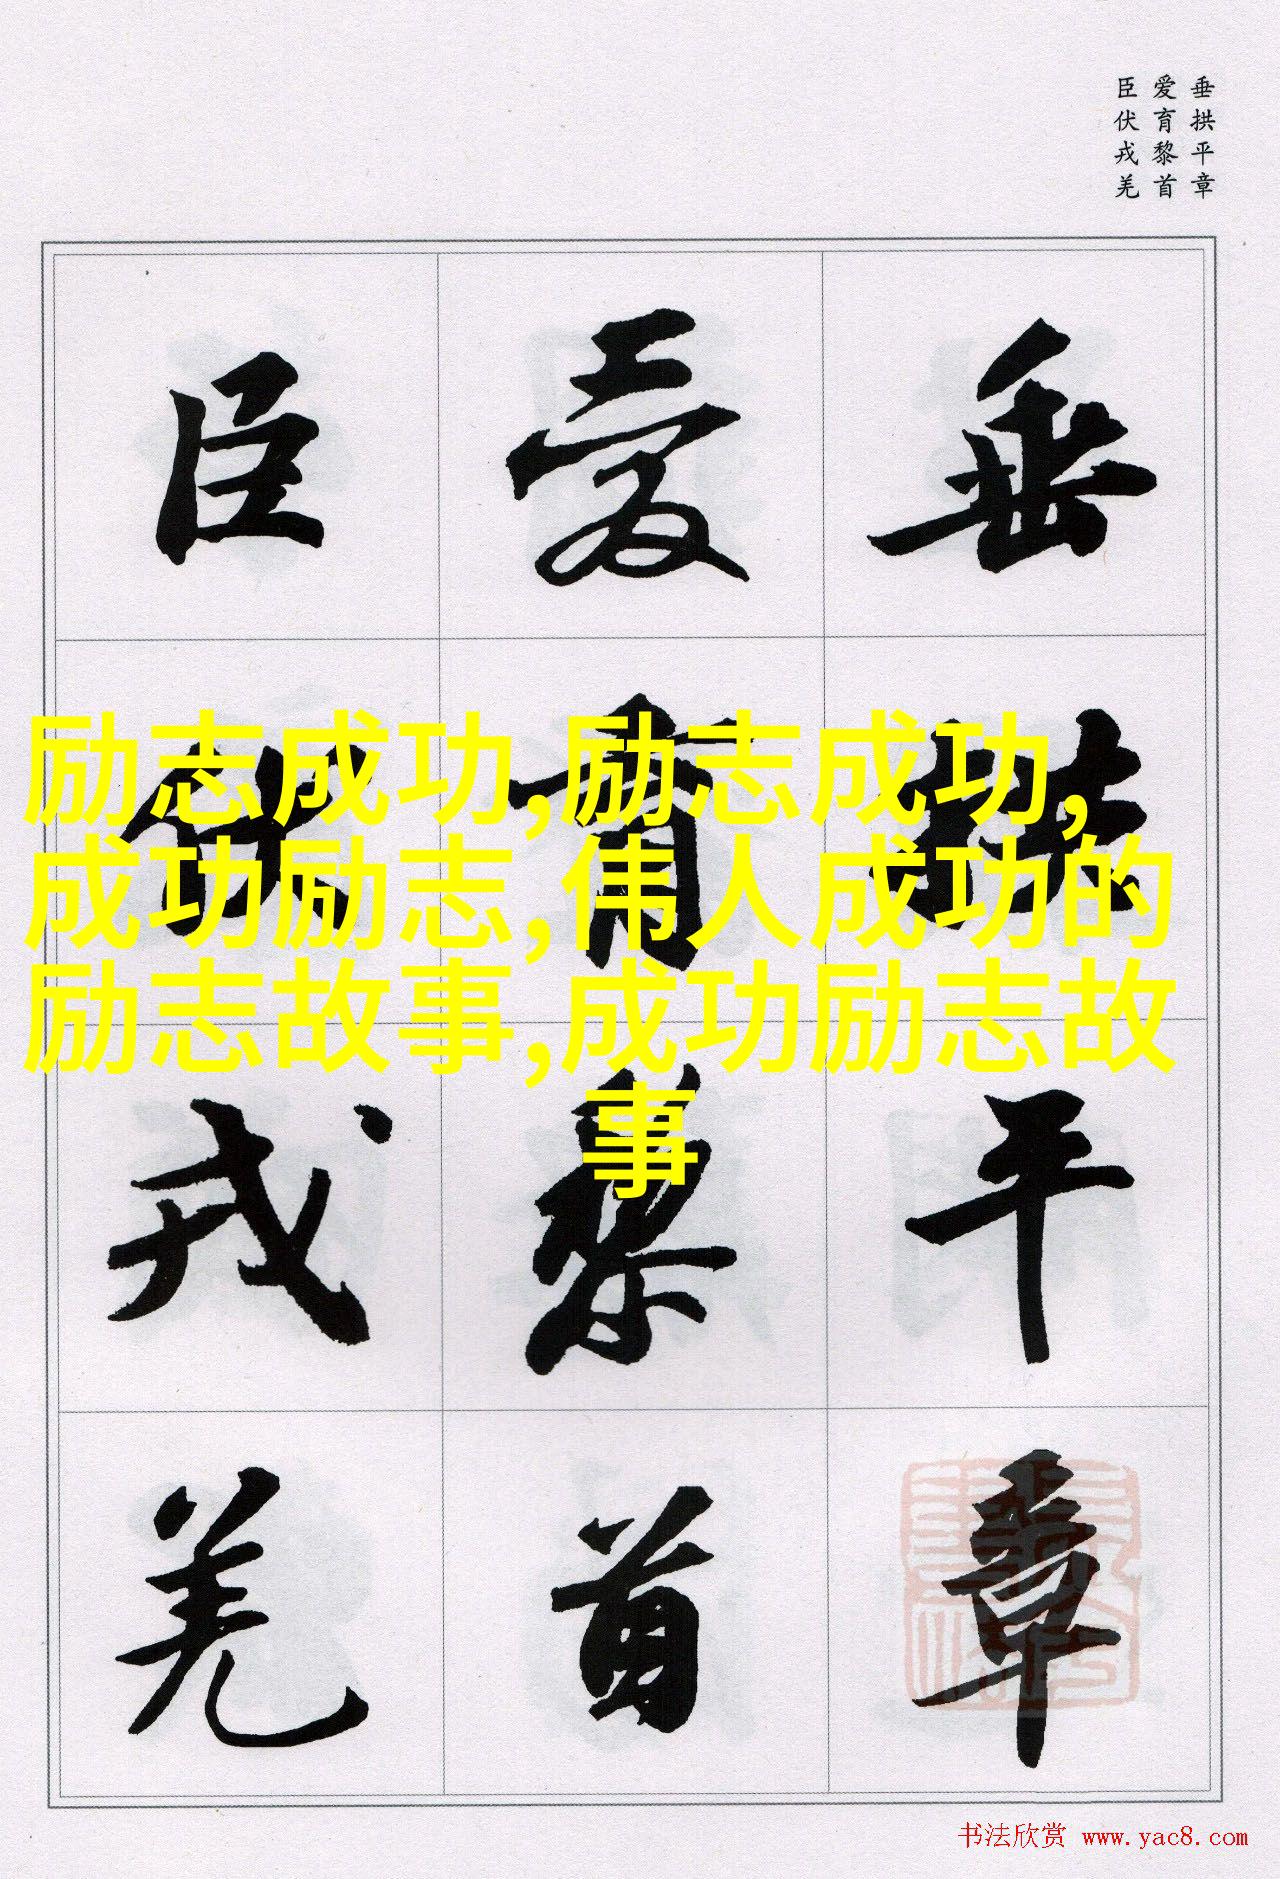 垂拱平章
爱育黎首
臣伏戎羌
垂拱平章
爱育黎首
臣伏戎羌
励志成功,励志成功,
成功励志,伟人成功的
励志故事,成功励志故
事
书法欣赏 www.yac8.com